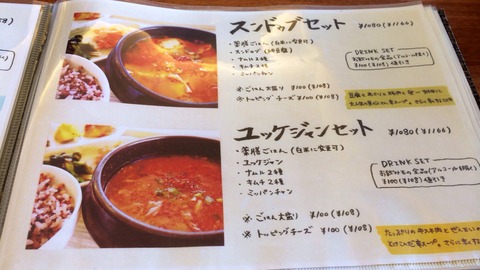 スンドゥブセット ¥1080(¥1166)
・薬膳ごはん (白米に変更可)
・スンドゥブ
・ナムル2種
・キムチ2種
・ミッパンチャン
※ごはん大盛り ¥100(¥108)
※トッピングチーズ ¥100(¥108)
DRINK SET
お飲みもの全品(アルコール除く)
¥100(¥108)値引き
ユッケジャンセット ¥1080(¥1166)
・薬膳ごはん (白米に変更可)
・ユッケジャン
・ナムル2種
・キムチ2種
・ミッパンチャン
※ごはん大盛り ¥100(¥108)
※トッピングチーズ ¥100(¥108)
DRINK SET
お飲みもの全品(アルコール除く)
¥100(¥108)値引き
たっぷりの牛スネ肉と